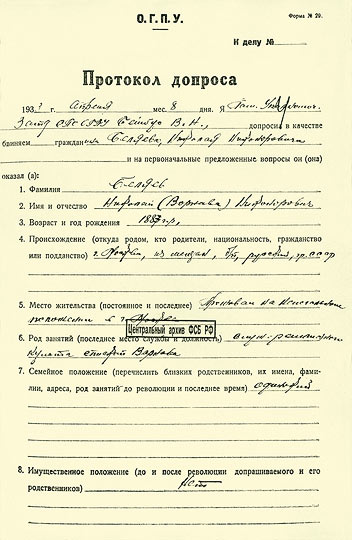 О.Г.П.У.
Форма № 29.
К делу №
Протокол допроса
193 г. апреля мес. 8 дня. Я
В. Н., допросил в качестве
обвиняем гражданина Беляева, Николая Никаноровича
и на первоначальные предложенные вопросы он (она)
показал (а):
1. Фамилия Беляев
2. Имя и отчество Николай (Варнава) Никанорович
3. Возраст и год рождения 1887 г.р.
4. Происхождение (откуда родом, кто родители, национальность, гражданство
или подданство) г. из мещан, б/п, русский, гр. СССР
5. Место жительства (постоянное и последнее) на
положении в г.
Центральный архив ФСБ РФ
6. Род занятий (последнее место службы и должность)
культа епископ Варнава
7. Семейное положение (перечислить близких родственников, их имена, фами-
лии, адреса, род занятий до революции и последнее время) одинокий
8. Имущественное положение (до и после революции допрашиваемого и его
родственников) Нет